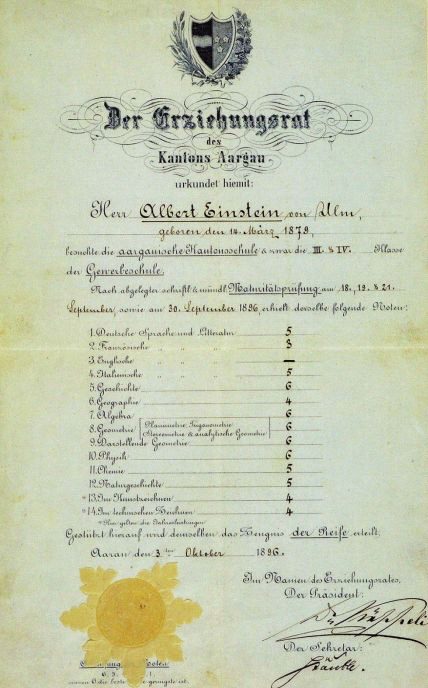 Der Erziehungsrat
des
Kantons Aargau
urkundet hiemit:
Herr Albert Einstein von Ulm,
geboren den 14. März 1879,
besuchte die aargauische Kantonsschule & zwar die III. & IV. Klasse
der Gewerbeschule.
Nach abgelegter schriftl. & mündl. Maturitätsprüfung am 18., 19. & 21.
September, sowie am 30. September 1896, erhielt derselbe folgende Noten:
1. Deutsche Sprache und Litteratur 5
2. Französische " " " 3
3. Englische " " " —
4. Italienische " " " 5
5. Geschichte 6
6. Geographie 4
7. Algebra 6
8. Geometrie [Planimetrie, Trigonometrie 6
Stereometrie & analytische Geometrie]
9. Darstellende Geometrie 6
10. Physik 6
11. Chemie 5
12. Naturgeschichte 5
*13. Im Kunstzeichnen 4
*14. Im technischen Zeichnen 4
*Hier gelten die Jahresleistungen
Gestützt hierauf wird demselben das Zeugnis der Reife erteilt.
Aarau den 3ten Oktober 1896.
Im Namen des Erziehungsrates,
Der Präsident:
Der Sekretär:
Noten
6 die beste geringste ist.